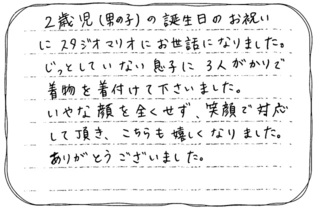 2歳児(男の子)の誕生日のお祝い
にスタジオマリオにお世話になりました。
じっとしていない息子に3人がかりで
着物を着付けて下さいました。
いやな顔を全くせず、笑顔で対応
して頂き、こちらも嬉しくなりました。
ありがとうございました。